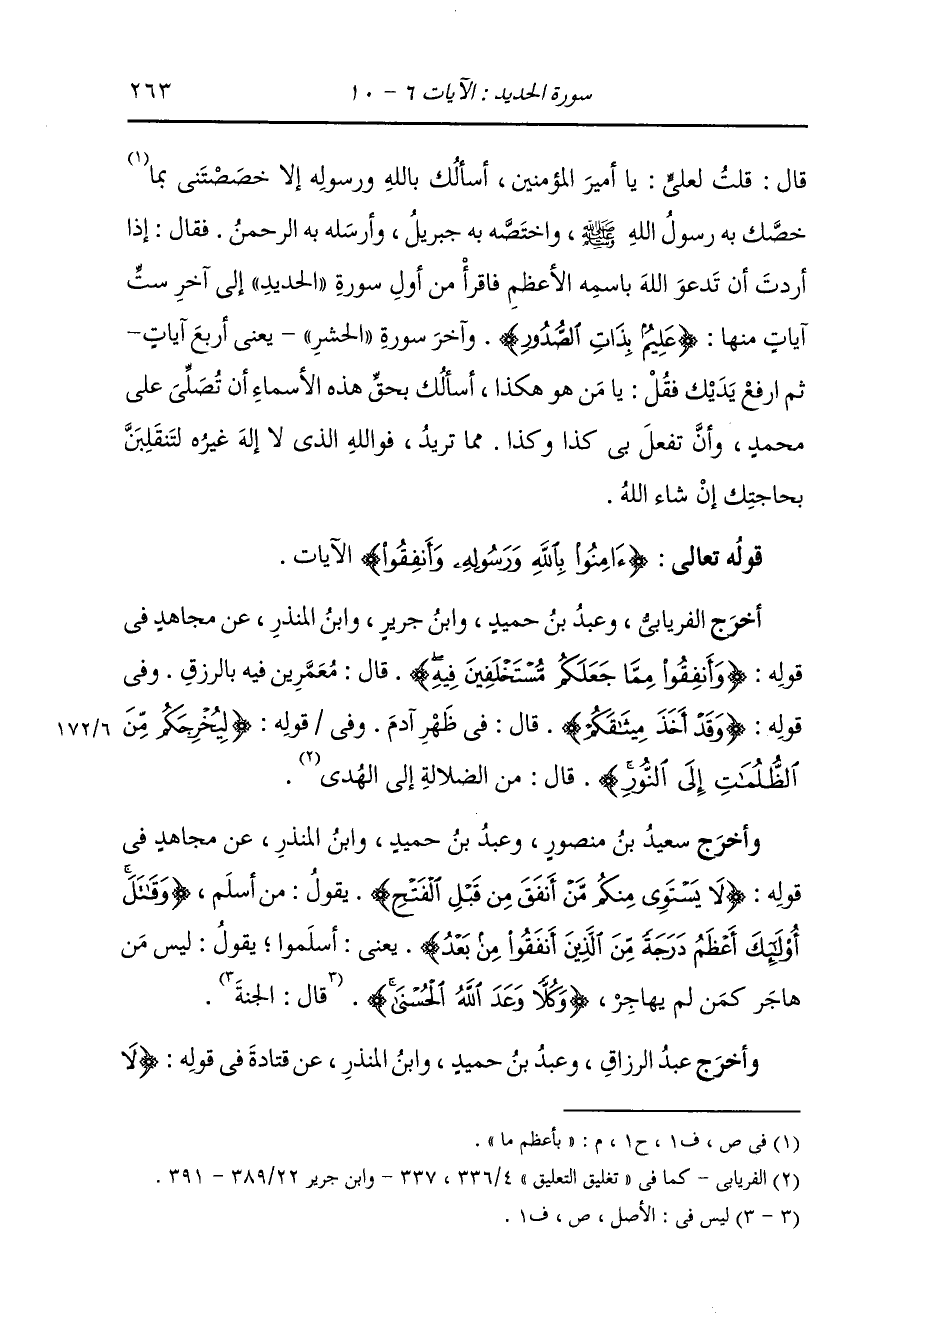 سورة الحديد : الآيات ٦ - ١٠ ٢٦٣
قال : قلتُ لعليٍّ : يا أميرَ المؤمنين ، أسألُك باللهِ ورسولِه إلا خصَصْتَنى بما(١)
خصَّك به رسولُ اللهِ ﷺ ، واختَصَّه به جبريلُ ، وأرسَله به الرحمنُ . فقال : إذا
أردتَ أن تَدعوَ اللهَ باسمِه الأعظمِ فاقرأْ من أولِ سورةِ «الحديدِ» إلى آخرِ ستِّ
آياتٍ منها : ﴿عَلِيمٌۢ بِذَاتِ ٱلصُّدُورِ﴾ . وآخرَ سورةِ «الحشرِ» - يعنى أربعَ آياتٍ -
ثم ارفعْ يَدَيْك فقُلْ : يا مَن هو هكذا ، أسألُك بحقِّ هذه الأسماءِ أن تُصَلِّىَ على
محمدٍ ، وأنَّ تفعلَ بى كذا وكذا . مما تريدُ ، فواللهِ الذى لا إلهَ غيرُه لتَنقَلِبَنَّ
بحاجتِك إنْ شاء اللهُ .
قولُه تعالى : ﴿ءَامِنُواْ بِٱللَّهِ وَرَسُولِهِۦ وَأَنفِقُواْ﴾ الآيات .
أخرَج الفريابىُّ ، وعبدُ بنُ حميدٍ ، وابنُ جريرٍ ، وابنُ المنذرِ ، عن مجاهدٍ فى
قولِه : ﴿وَأَنفِقُواْ مِمَّا جَعَلَكُم مُّسۡتَخۡلَفِينَ فِيهِۖ﴾ . قال : مُعَمَّرين فيه بالرزقِ . وفى
قولِه : ﴿وَقَدۡ أَخَذَ مِيثَٰقَكُمۡ﴾ . قال : فى ظَهْرِ آدمَ . وفى / قولِه : ﴿لِيُخۡرِجَكُم مِّنَ ١٧٢/٦
ٱلظُّلُمَٰتِ إِلَى ٱلنُّورِۚ﴾ . قال : من الضلالةِ إلى الهُدى(٢) .
وأخرَج سعيدُ بنُ منصورٍ ، وعبدُ بنُ حميدٍ ، وابنُ المنذرِ ، عن مجاهدٍ فى
قولِه : ﴿لَا يَسۡتَوِى مِنكُم مَّنۡ أَنفَقَ مِن قَبۡلِ ٱلۡفَتۡحِ﴾ . يقولُ : من أسلَم ، ﴿وَقَٰتَلَۚ
أُوْلَٰٓئِكَ أَعۡظَمُ دَرَجَةٗ مِّنَ ٱلَّذِينَ أَنفَقُواْ مِنۢ بَعۡدُ﴾ . يعنى : أسلَموا ؛ يقولُ : ليس مَن
هاجَر كمَن لم يهاجِرْ ، ﴿وَكُلّٗا وَعَدَ ٱللَّهُ ٱلۡحُسۡنَىٰۚ﴾ . (٣قال : الجنةَ٣) .
وأخرَج عبدُ الرزاقِ ، وعبدُ بنُ حميدٍ ، وابنُ المنذرِ ، عن قتادةَ فى قولِه : ﴿لَا
(١) فى ص ، ف١ ، ح١ ، م : « بأعظم ما » .
(٢) الفريابى - كما فى « تغليق التعليق » ٣٣٦/٤ ، ٣٣٧ - وابن جرير ٣٨٩/٢٢ - ٣٩١ .
(٣ - ٣) ليس فى : الأصل ، ص ، ف١ .